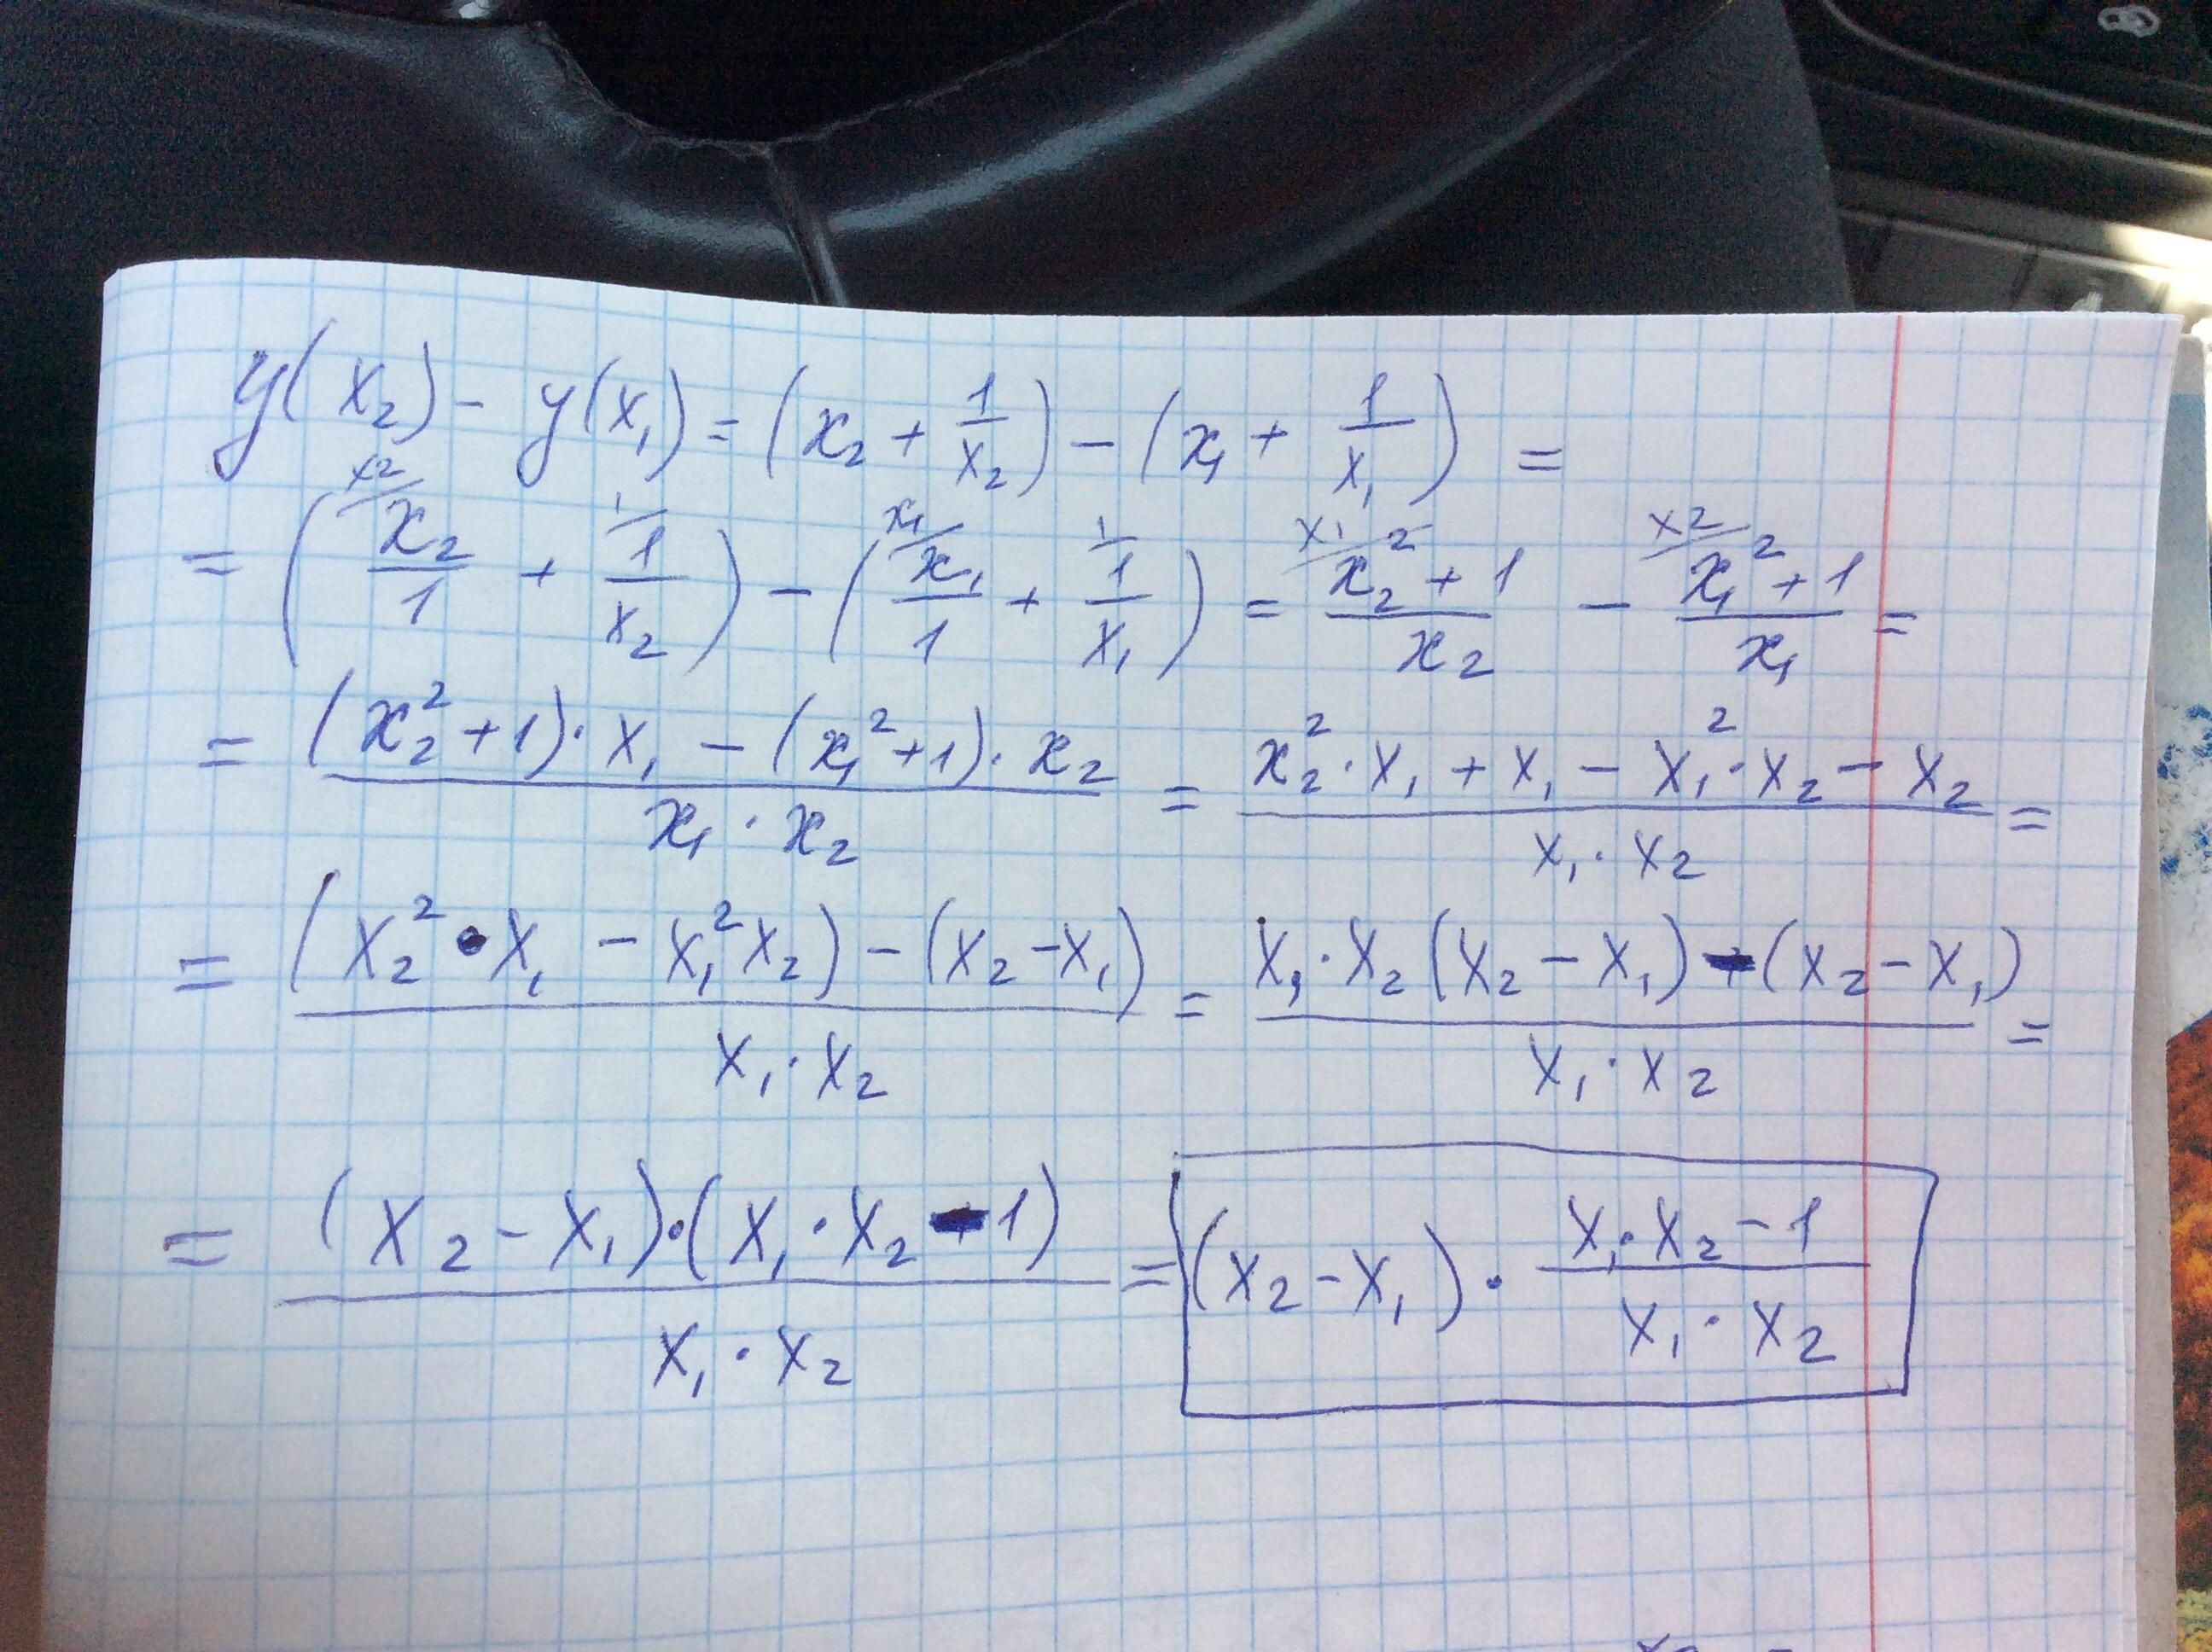 y(x₂) - y(x₁) = (x₂ + 1/x₂) - (x₁ + 1/x₁) =
= (x₂/1 ^x2/ + 1/x₂ ^1/) - (x₁/1 ^x₁/ + 1/x₁ ^1/) = (x₂² + 1)/x₂ ^x1/ - (x₁² + 1)/x₁ ^x2/ =
= ((x₂² + 1) · x₁ - (x₁² + 1) · x₂)/(x₁ · x₂) = (x₂² · x₁ + x₁ - x₁² · x₂ - x₂)/(x₁ · x₂) =
= ((x₂² · x₁ - x₁² x₂) - (x₂ - x₁))/(x₁ · x₂) = (x₁ · x₂ (x₂ - x₁) - (x₂ - x₁))/(x₁ · x₂) =
= ((x₂ - x₁) · (x₁ · x₂ - 1))/(x₁ · x₂) = (x₂ - x₁) · (x₁ · x₂ - 1)/(x₁ · x₂)